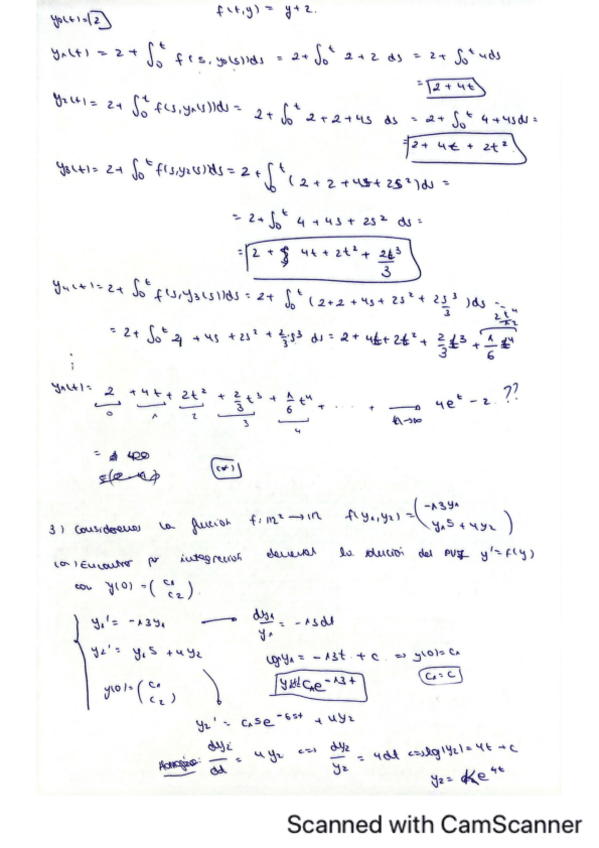 y₀(t)=2 f(t,y) = y+2.
y₁(t) = 2 + ∫₀ᵗ f(s, y₀(s))ds = 2+∫₀ᵗ 2+2 ds = 2+∫₀ᵗ 4ds
= 2+4t
y₂(t) = 2+ ∫₀ᵗ f(s,y₁(s))ds = 2+∫₀ᵗ 2+2+4s ds = 2+∫₀ᵗ 4+4sds=
= 2+ 4t + 2t²
y₃(t) = 2+ ∫₀ᵗ f(s,y₂(s))ds = 2 + ∫₀ᵗ (2+2+4s+2s²)ds =
= 2+∫₀ᵗ 4+4s+2s² ds =
= 2 + 4t + 2t² + 2t³/3
y₄(t)=2+∫₀ᵗ f(s,y₃(s))ds = 2+ ∫₀ᵗ (2+2+4s+2s²+2s³/3)ds =
2t⁴/12
= 2+∫₀ᵗ 4+4s+2s²+2/3s³ ds = 2+4t+2t²+2/3t³+1/6t⁴
⋮
yₙ(t)= 2 +4t+2t²+2/3t³+1/6t⁴+ .... + ⟶ 4eᵗ-2. ??
0 1 2 3 4 n→∞
(*)
3) Consideremos la función f:ℝ²→ℝ f(y₁,y₂)=(-13y₁
y₁5+4y₂)
(a) Encontrar por integración elemental la solución del PVI y'=f(y)
con y(0)=(c₁
c₂).
y₁'= -13y₁ ⟶ dy₁/y₁ = -13dt
y₂'= y₁5+4y₂ logy₁ = -13t + c ⇒ y(0)=c₁
y(0)=(c₁ c₂) c₁e⁻¹³ᵗ c₁=c
y₂' = c₁5e + 4y₂
dy₂/dt = 4y₂ ⟺ dy₂/y₂ = 4dt ⟺ log(y₂)=4t+c
y₂= Ke⁴ᵗ
Scanned with CamScanner